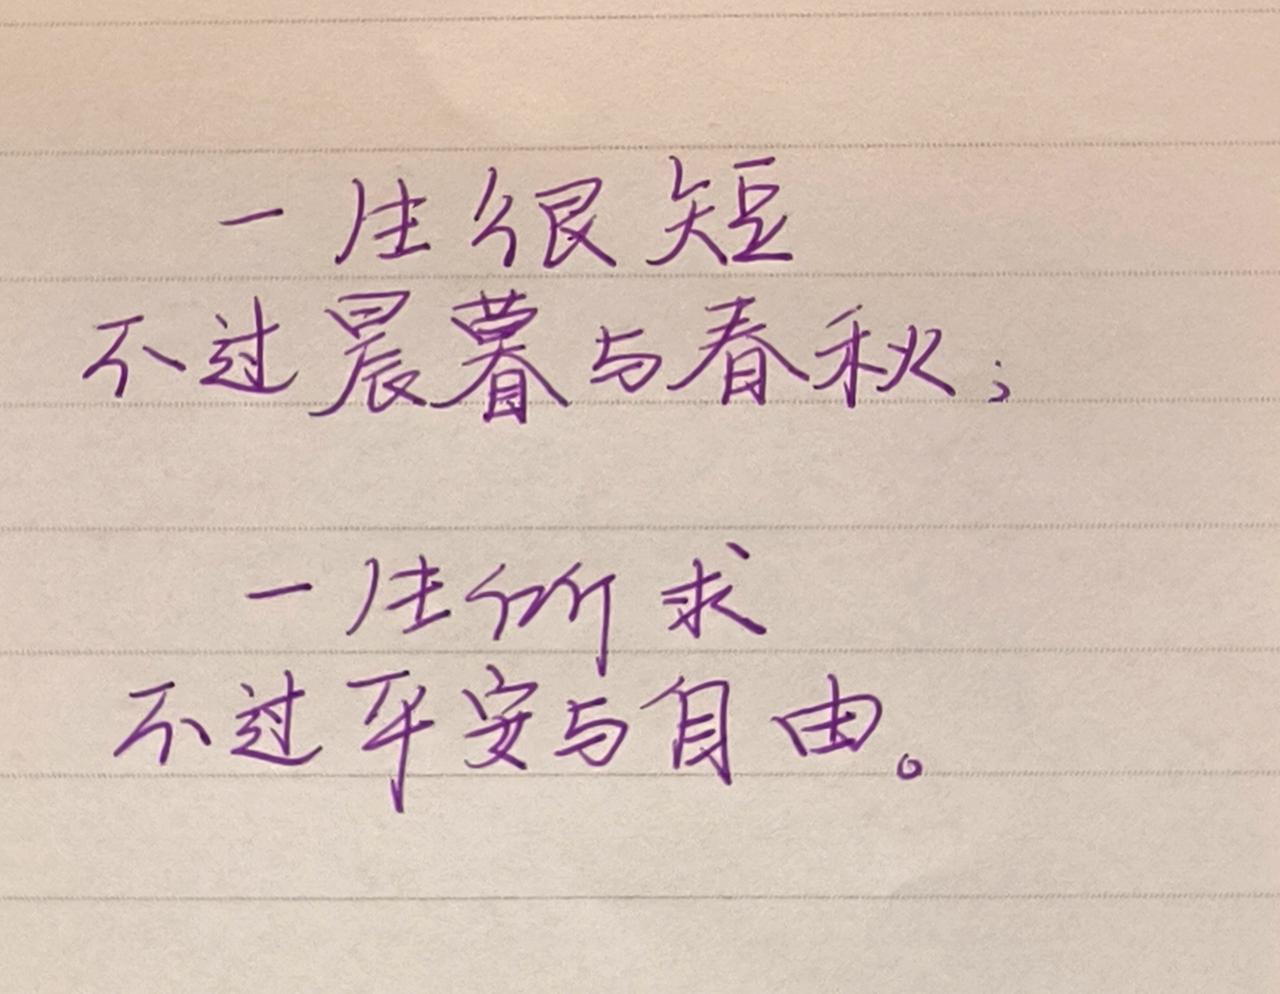 一生很短
不过晨暮与春秋；
一生所求
不过平安与自由。